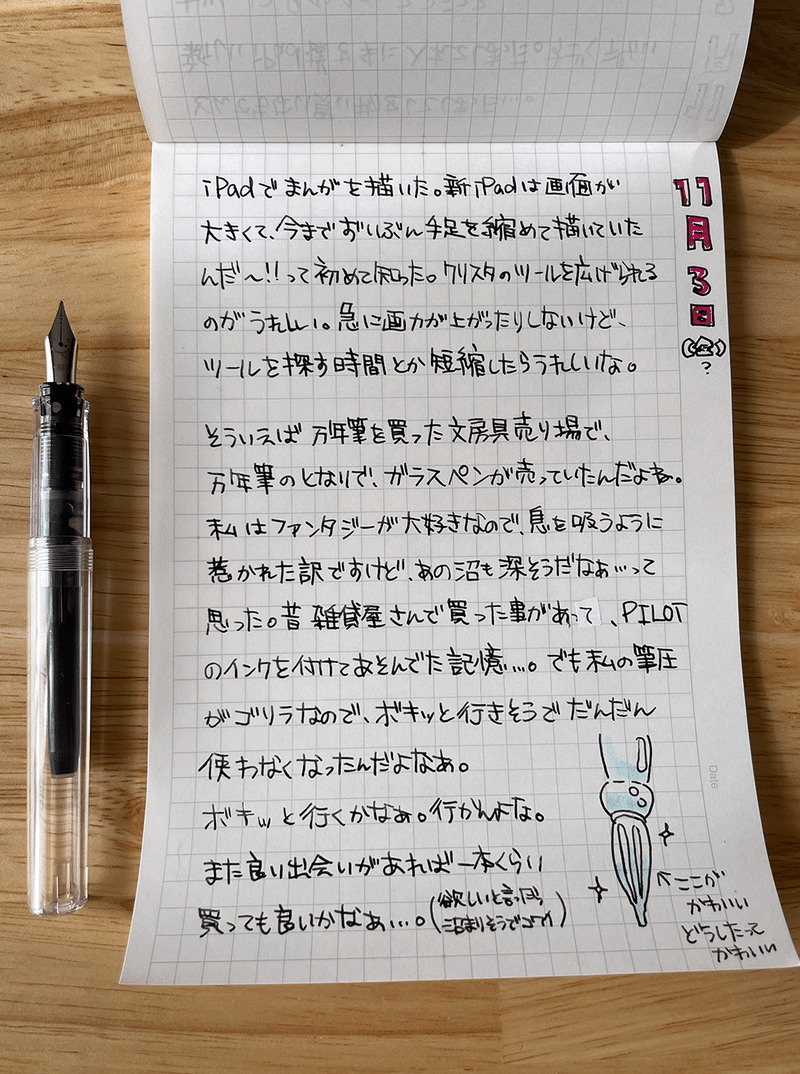 11月3日(金)?
iPadでまんがを描いた。新iPadは画面が
大きくて、今までずいぶん手足を縮めて描いていた
んだ〜!!って初めて知った。クリスタのツールを広げられる
のがうれしい。急に画力が上がったりしないけど、
ツールを探す時間とか短縮したらうれしいな。
そういえば万年筆を買った文房具売り場で、
万年筆のとなりで、ガラスペンが売っていたんだよね。
私はファンタジーが大好きなので、息を吸うように
惹かれた訳ですけど、あの沼も深そうだなぁ…って
思った。昔雑貨屋さんで買った事があって、PILOT
のインクを付けてあそんでた記憶…。でも私の筆圧
がゴリラなので、ボキッと行きそうでだんだん
使わなくなったんだよなあ。
ボキッと行くかなぁ。行かんよな。
また良い出会いがあれば一本くらい
買っても良いかなぁ…。(欲しいと言ったら
沼まりそうでコワイ)
←ここが
かわいい
どうしたって
かわいい
Date